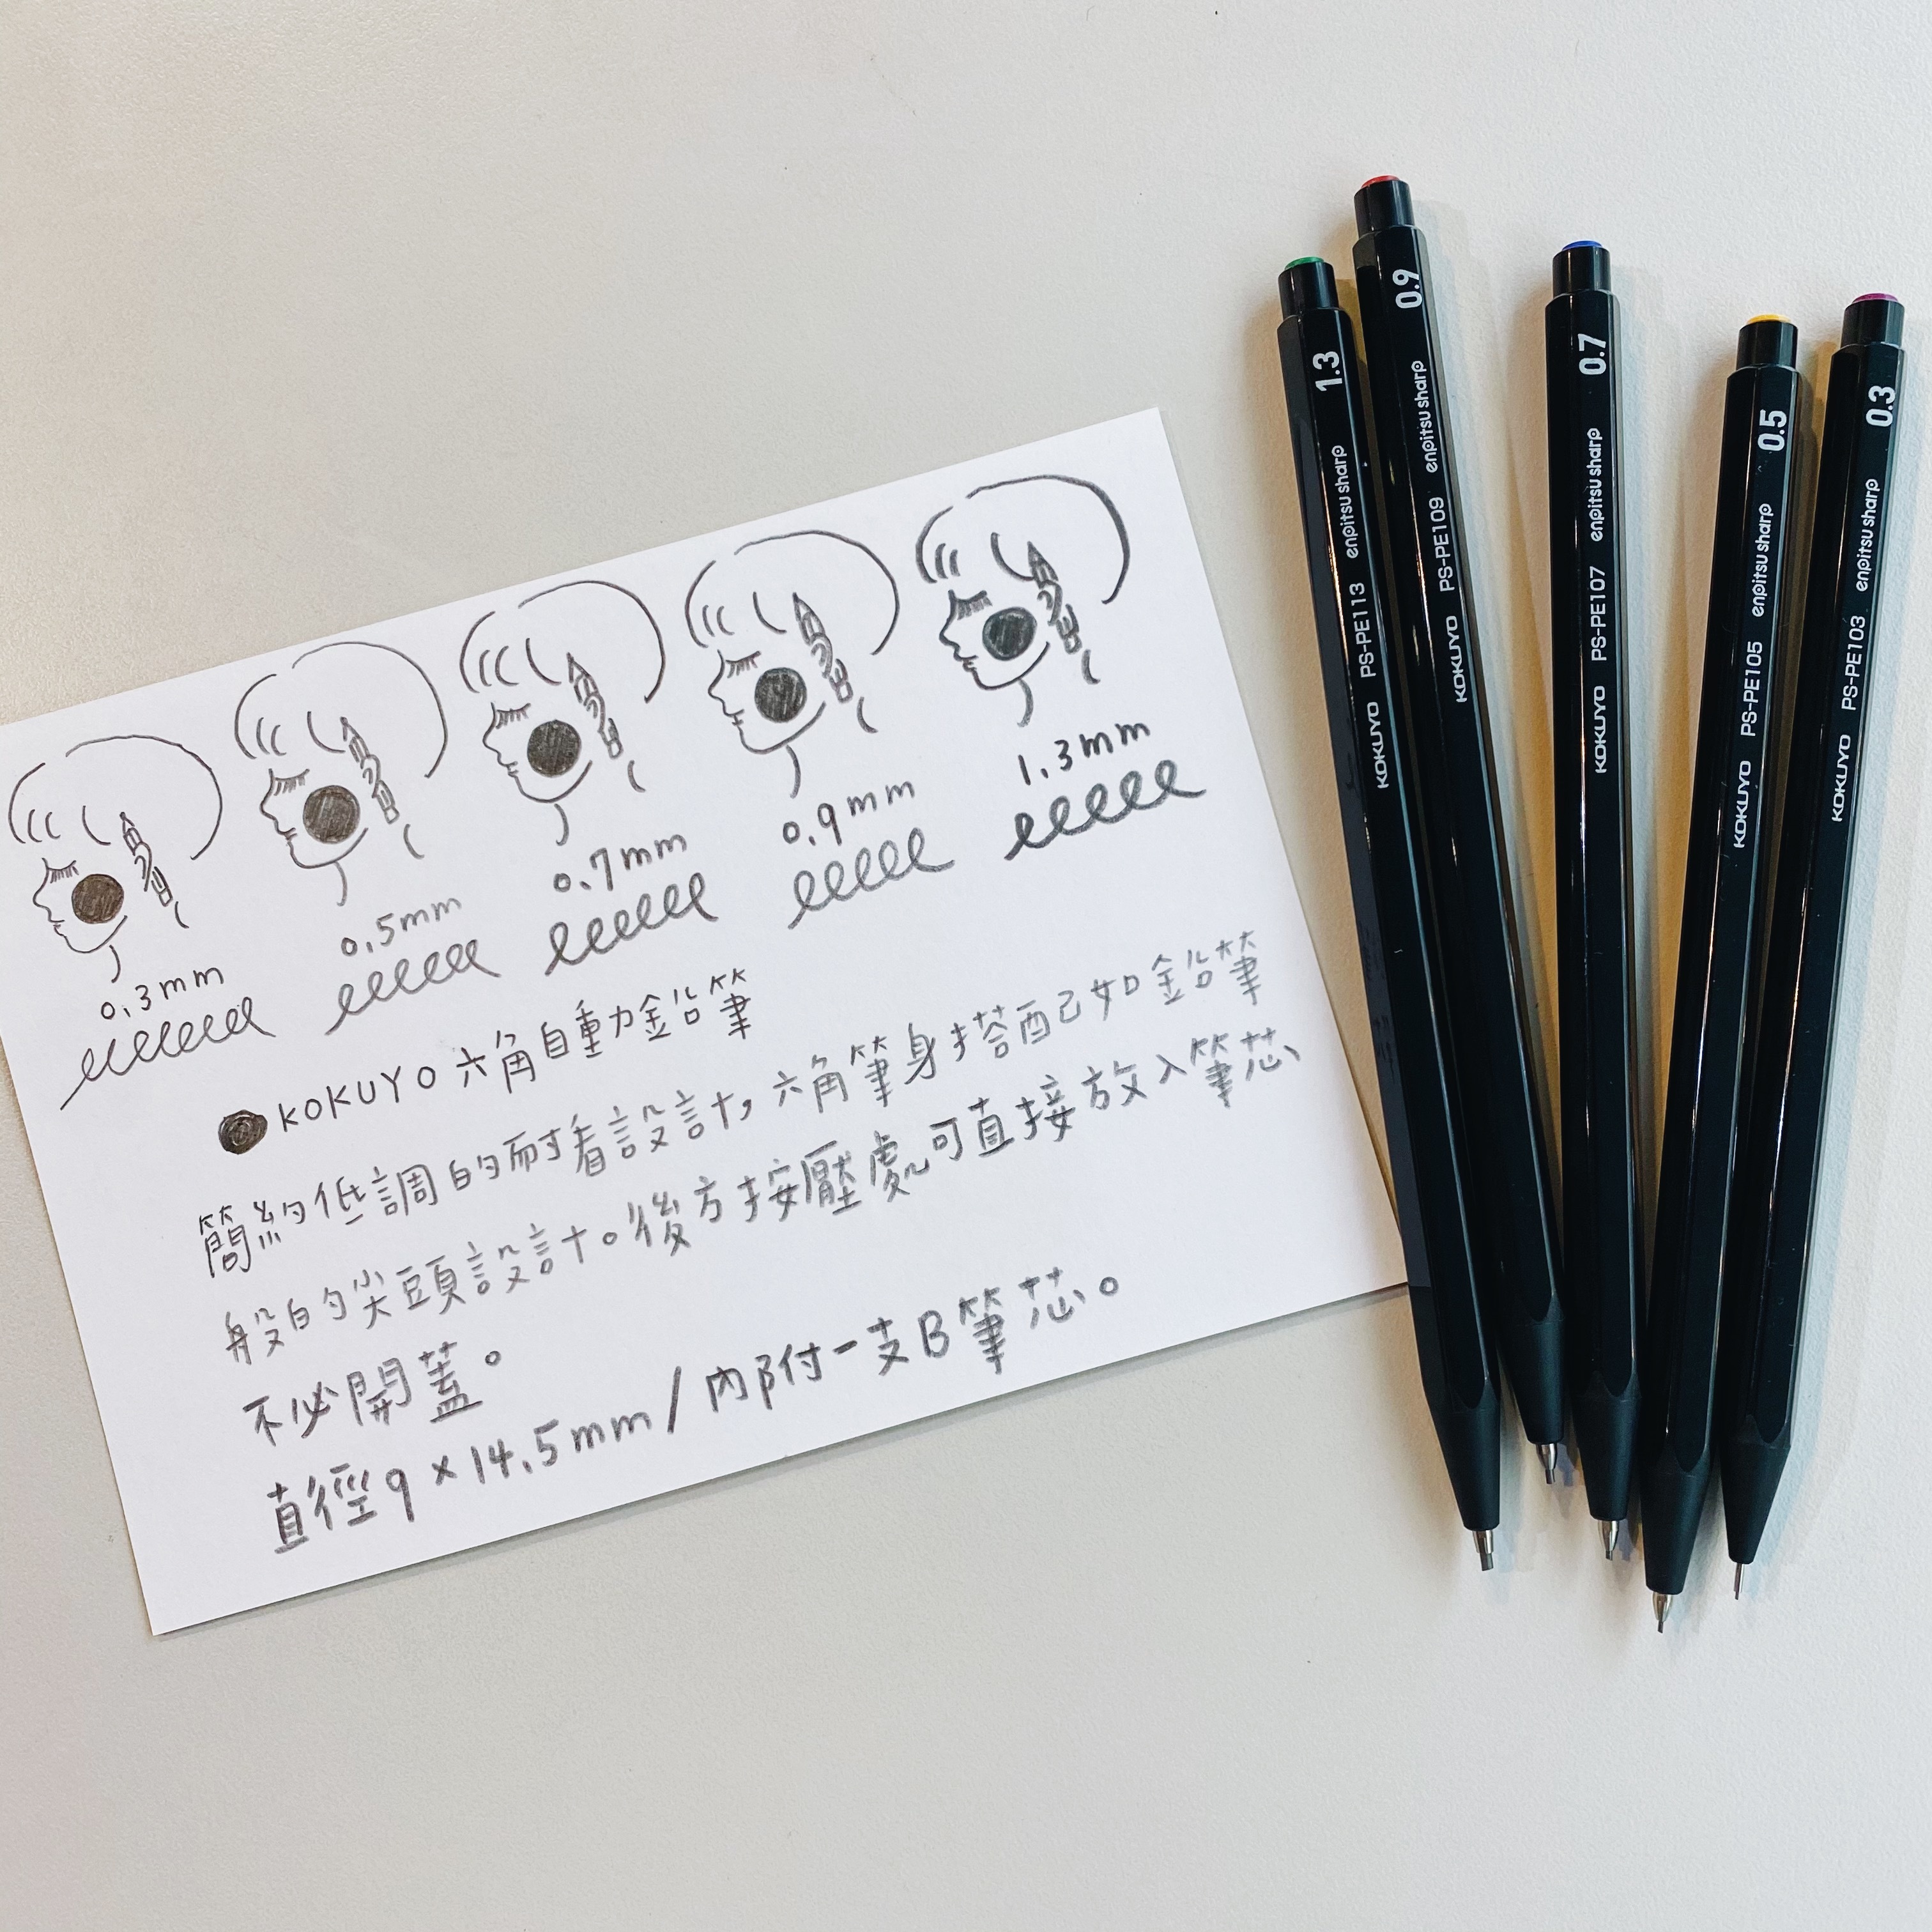 0.3mm
0.5mm
0.7mm
0.9mm
1.3mm
KOKUYO 六角自動鉛筆
簡約低調的耐看設計,六角筆身搭配已如鉛筆
般的尖頭設計。後方按壓處可直接放入筆芯
不必開蓋。
直徑9×14.5mm/內附一支B筆芯。
KOKUYO PS-PE113 enpitsu sharp 1.3
KOKUYO PS-PE109 enpitsu sharp 0.9
KOKUYO PS-PE107 enpitsu sharp 0.7
KOKUYO PS-PE105 enpitsu sharp 0.5
KOKUYO PS-PE103 enpitsu sharp 0.3